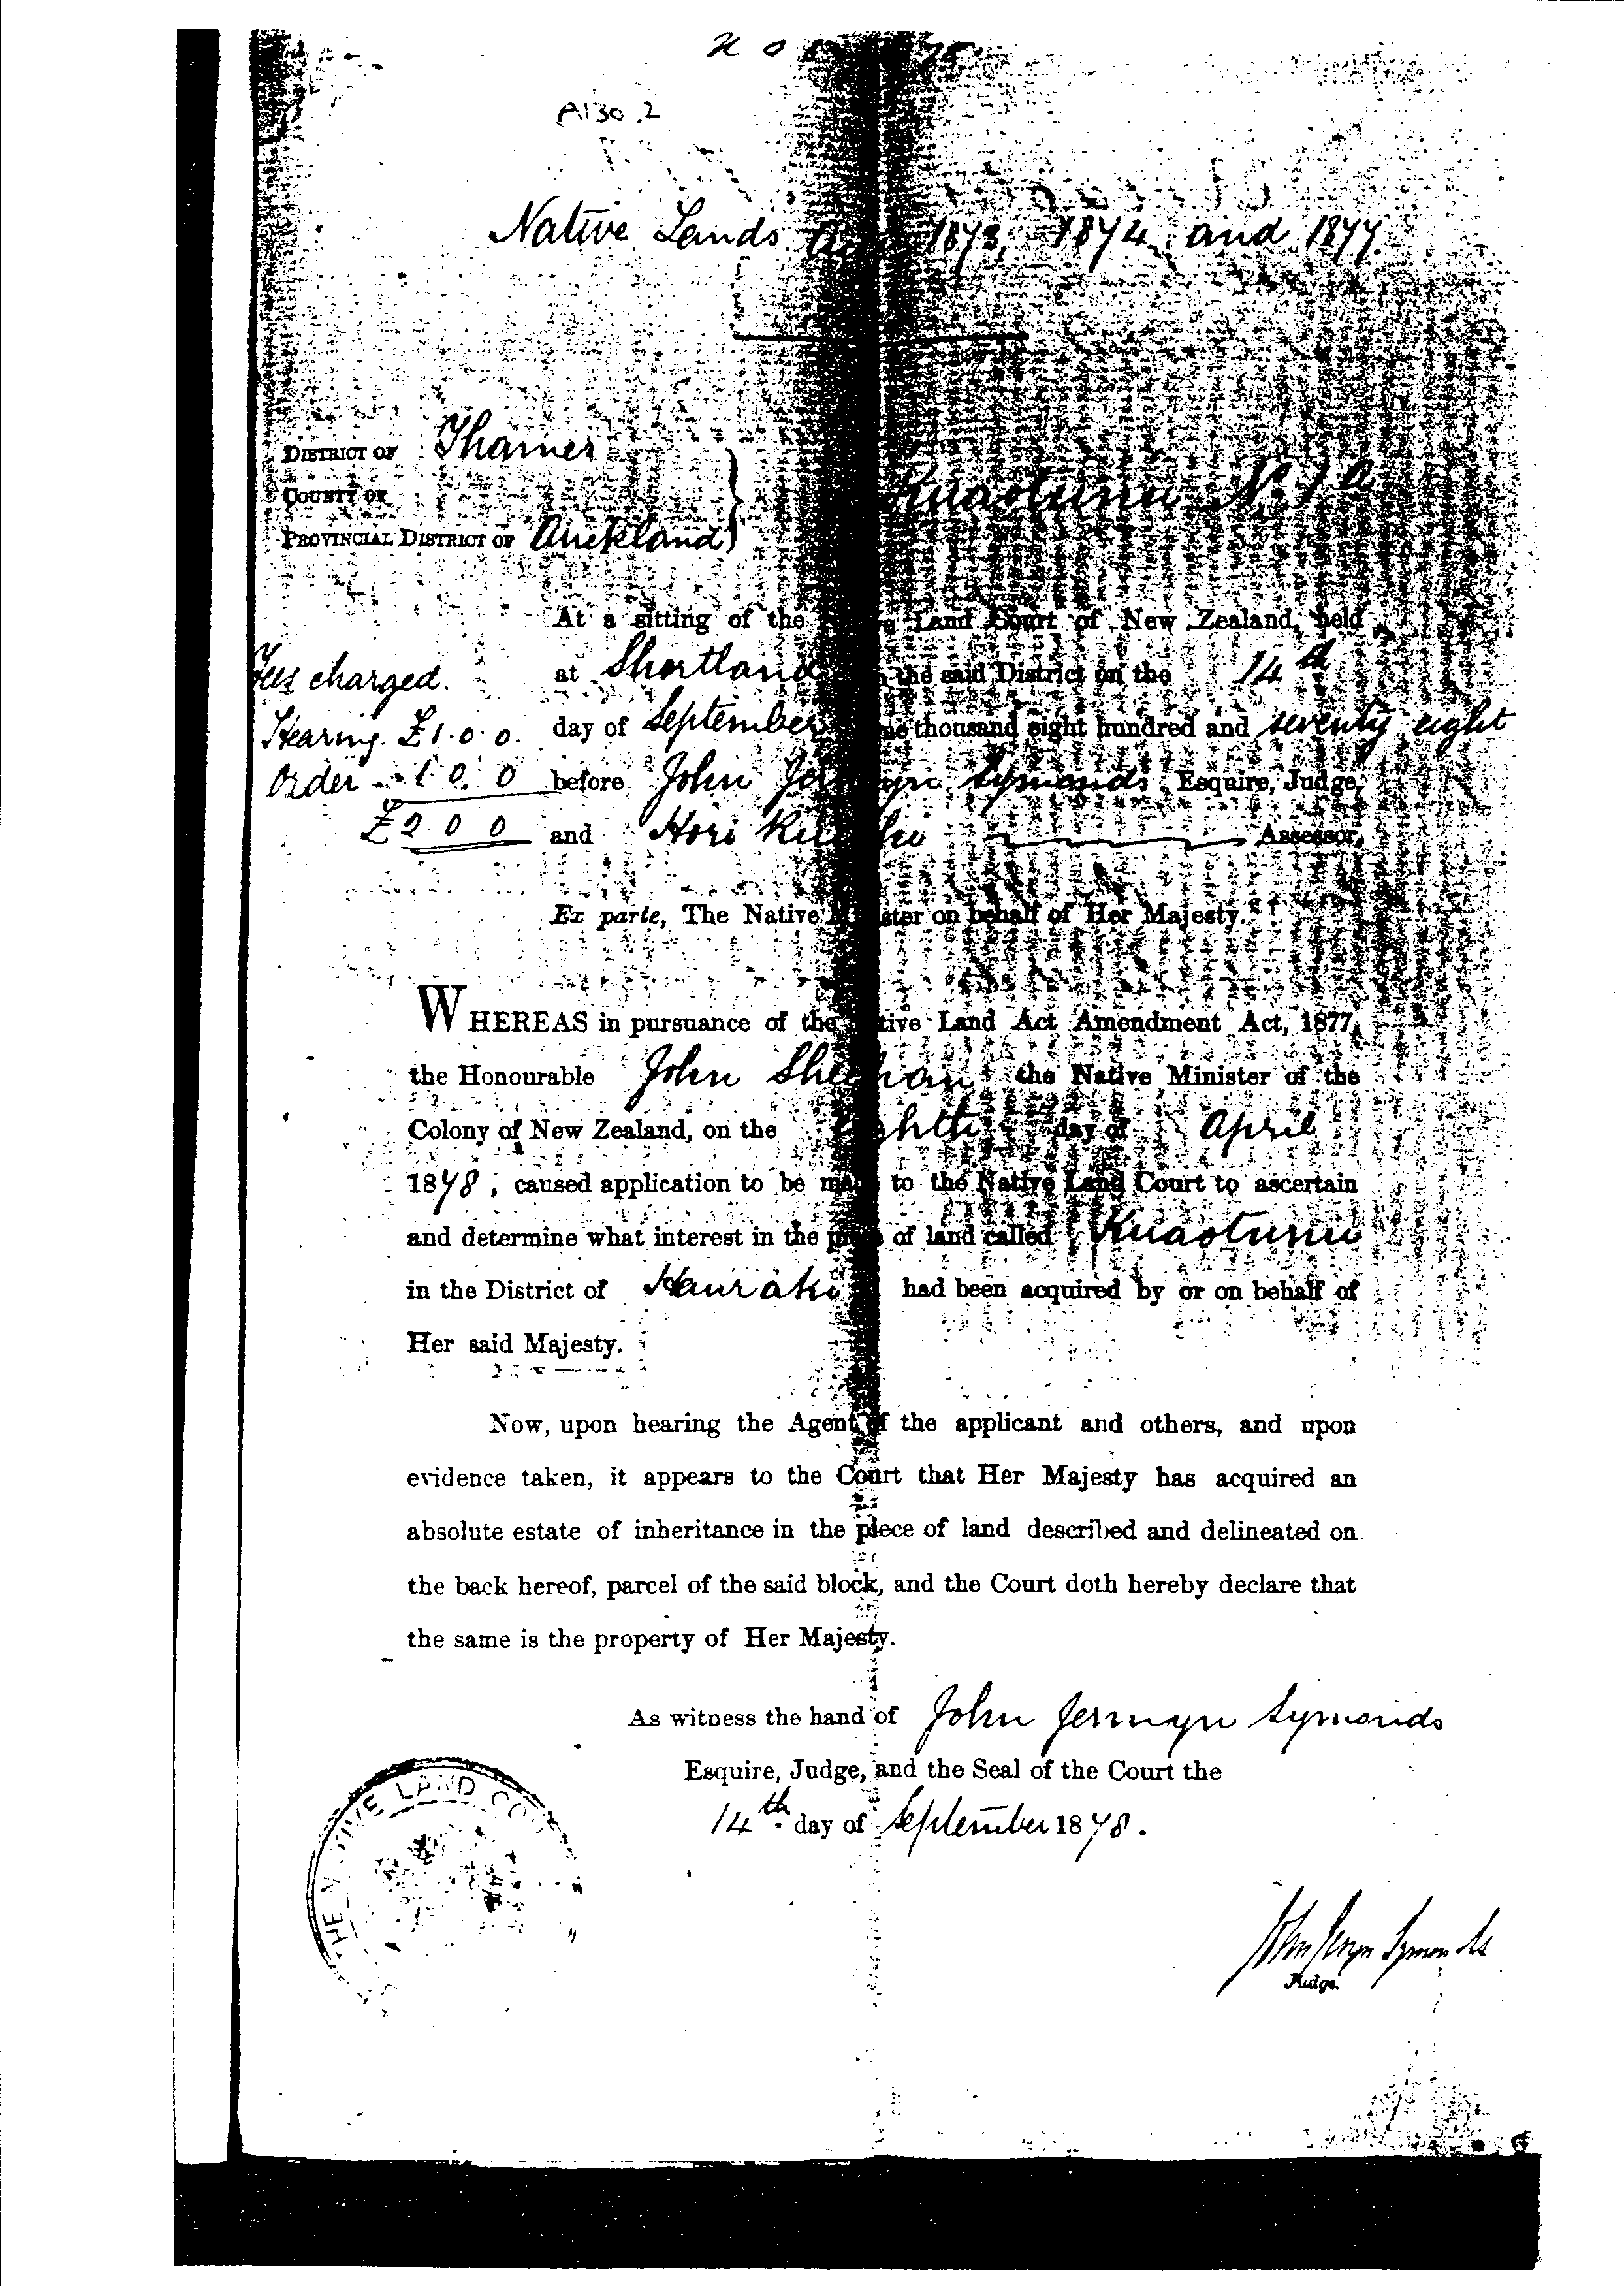 A130.2
Native Lands 1873, 1874 and 1877.
DISTRICT OF Thames
COUNTY OF
PROVINCIAL DISTRICT OF Auckland
Kuaotunu No 1a
At a sitting of the Land Court of New Zealand, held
Fees charged. at Shortland the said District on the 14th
Hearing £1.0.0. day of September thousand eight hundred and seventy eight
Order 1.0.0 before John Jermyn Symonds Esquire, Judge,
£2.0.0 and Hori Assessor,
Ex parte, The Native Minister on behalf of Her Majesty.
WHEREAS in pursuance of the Native Land Act Amendment Act, 1877,
the Honourable John Sheehan the Native Minister of the
Colony of New Zealand, on the eighth day of April
1878, caused application to be made to the Native Land Court to ascertain
and determine what interest in the piece of land called Kuaotunu
in the District of Hauraki had been acquired by or on behalf of
Her said Majesty.
Now, upon hearing the Agent of the applicant and others, and upon
evidence taken, it appears to the Court that Her Majesty has acquired an
absolute estate of inheritance in the piece of land described and delineated on
the back hereof, parcel of the said block, and the Court doth hereby declare that
the same is the property of Her Majesty.
As witness the hand of John Jermyn Symonds
Esquire, Judge, and the Seal of the Court the
14th day of September 1878.
THE NATIVE LAND COURT
John Jermyn Symonds
Judge.